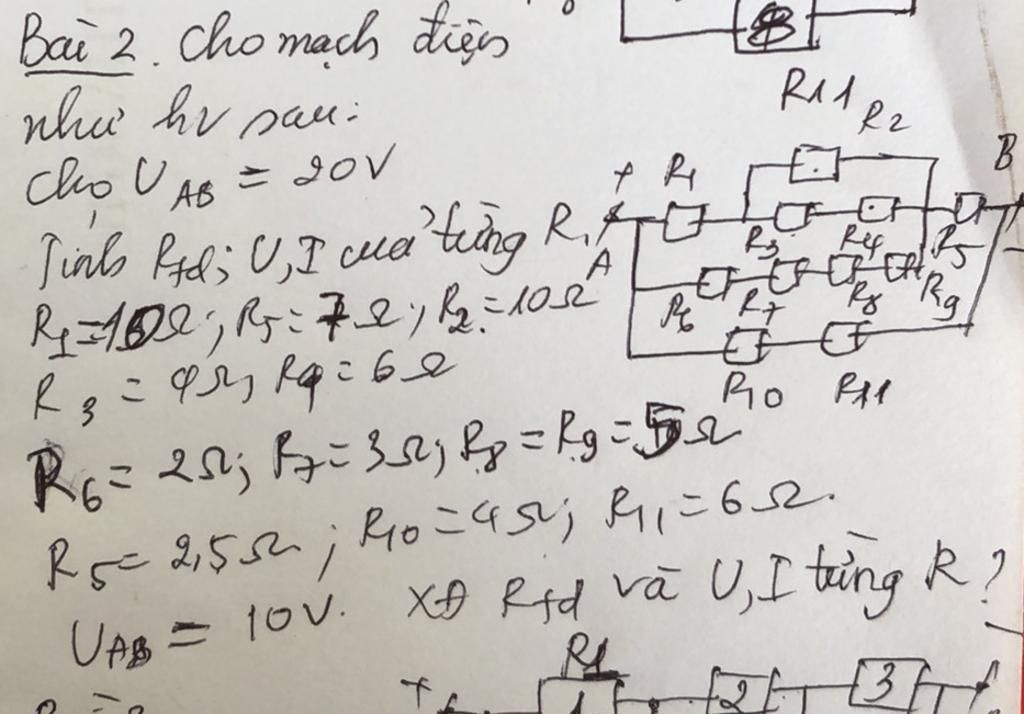 Bài 2. Cho mạch điện
như hv sau:
Cho U AB = 20V
Tính Rtđ; U, I của từng R
R1 = 10Ω; R5 = 7Ω; R2 = 10Ω
R3 = 4Ω, R4 = 6Ω
R6 = 2Ω; R7 = 3Ω; R8 = R9 = 5Ω
R5 = 2,5Ω; R10 = 4Ω; R11 = 6Ω.
UAB = 10V. XĐ Rtđ và U, I từng R?
8
R11
R2
B
+ R1
A
R3 R4 R5
R6 R7 R8 R9
R10 R11
R1
+ 1 2 3